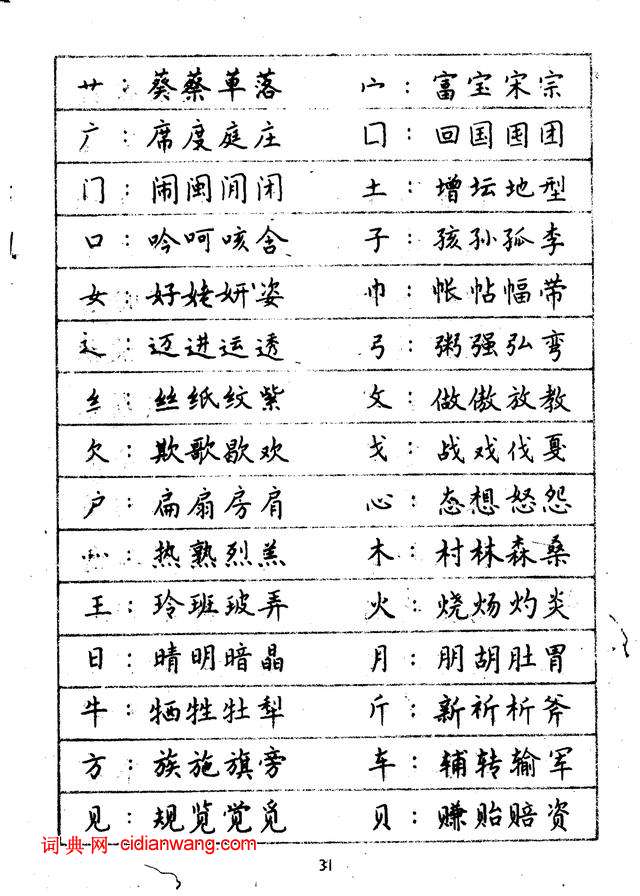 艹：葵蔡草落 宀：富宝宋宗
广：席度庭庄 囗：回国囤团
门：闹闽闻闭 土：增坛地型
口：吟呵咳含 子：孩孙孤李
女：好姥妍姿 巾：帐帖幅带
辶：迈进运透 弓：粥强弘弯
纟：丝纸纹紫 攵：做傲放教
欠：欺歌歇欢 戈：战戏伐戛
户：扁扇房肩 心：态想怒怨
灬：热熟烈羔 木：村林森桑
王：玲班玻弄 火：烧炀灼炎
日：晴明暗晶 月：朋胡肚胃
牛：牺牲牡犁 斤：新祈析斧
方：族施旗旁 车：辅转输军
见：规览觉觅 贝：赚贻赔资
词·典·网·cidianwang.com
31